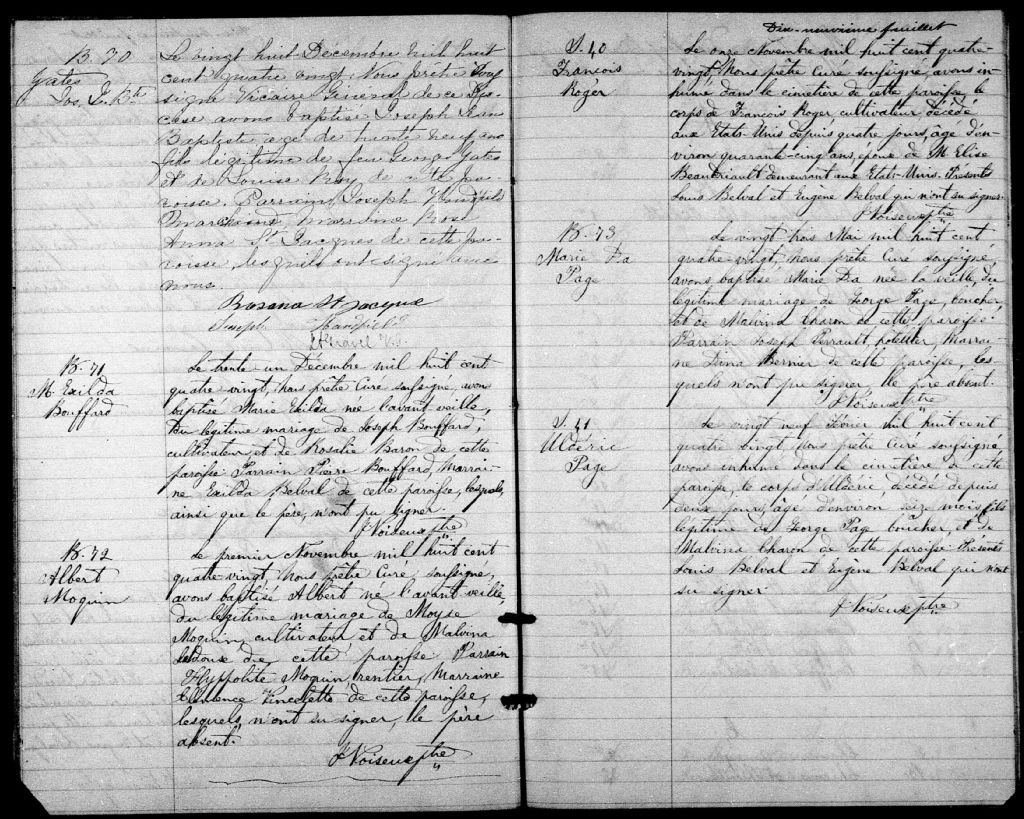 B. 70
Yates
Jos. J. Bte
Le vingt huit Decembre mil huit
cent quatre vingt, Nous prêtre Sous
signé Vicaire Général de ce Dio
cèse avons baptisé Joseph Jean
Baptiste agé de trente neuf ans
fils légitime de feu George Yates
et de Louise Roy de cette pa-
roisse. Parrain, Joseph Handfield
Marchand, Marraine Rose
Anna St Jacques de cette pa-
roisse, lesquels ont signé avec
nous.
Rosana St Jacque
Joseph Handfield
Gravel V.G.
B. 71
M. Exilda
Bouffard
Le trente un Décembre mil huit cent
quatre vingt, Nous prêtre Curé soussigné, avons
baptisé Marie Exilda née l'avant veille,
du légitime mariage de Joseph Bouffard,
cultivateur et de Rosalie Baron de cette
paroisse Parrain Pierre Bouffard, Marrai-
ne Exilda Belval de cette paroisse, lesquels,
ainsi que le père, n'ont pu signer.
J Noiseux ptre
B. 72
Albert
Moquin
Le premier Novembre mil huit cent
quatre-vingt, Nous prêtre Curé, soussigné,
avons baptisé Albert né l'avant veille,
du légitime mariage de Moyse
Moquin, cultivateur et de Malvina
Ledoux de cette paroisse Parrain
Hyppolite Moquin, rentier, Marraine
Clémence Vincelette de cette paroisse,
lesquels n'ont su signer, le père
absent.
J Noiseux ptre
Dix-neuvième feuillet
S. 40
François
Roger
Le onze Novembre mil huit cent quatre-
vingt, Nous prêtre Curé soussigné, avons in-
humé dans le cimetière de cette paroisse le
corps de François Roger cultivateur décédé
aux Etats-Unis depuis quatre jours, agé d'en-
viron quarante-cinq ans, époux de M. Elise
Beaudriault demeurant aux Etats-Unis. Présents
Louis Belval et Eugène Belval qui n'ont su signer.
J Noiseux ptre
B. 73
Marie Dia
Page
Le vingt trois Mai mil huit cent
quatre-vingt, Nous prêtre Curé soussigné,
avons baptisé Marie Dia née la veille, du
légitime mariage de George Page, boucher,
et de Malvina Charon de cette paroisse.
Parrain Joseph Perrault, hotellier, Marrai-
ne Dina Bernier de cette paroisse, les-
quels n'ont pu signer, le père absent.
J Noiseux ptre
S. 41
Uldéric
Page
Le vingt neuf Février mil huit cent
quatre vingt, Nous prêtre Curé soussigné
avons inhumé dans le cimetière de cette
paroisse, le corps d'Uldéric, décédé depuis
deux jours, âgé d'environ seize mois, fils
légitime de George Page boucher et de
Malvina Charon de cette paroisse Présents
Louis Belval et Eugène Belval qui n'ont
su signer
J Noiseux ptre